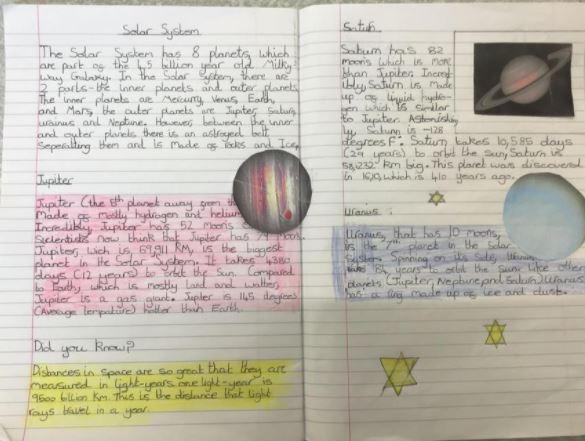 Solar System
The Solar System has 8 planets, which
are part of the 4.5 billion year old Milky
Way Galaxy. In the Solar System, there are
2 parts-the inner planets and outer planets.
The inner planets are Mercury, Venus, Earth,
and Mars, the outer planets are Jupiter, Saturn,
Uranus and Neptune. However, between the inner
and outer planets there is an astroyed belt
seperatting them and is Made of Rocks and Ice.
Jupiter
Jupiter (the 5th planet away from the
Made of mostly hydrogen and helium
Incredibly, Jupiter has 52 Moons
Scientists now think that Jupiter has 79 Moons.
Jupiter, wich is 69,911 KM, is the biggest
planet in the Solar System. It takes 4380
days (12 years) to orbit the Sun. Compared
to Earth, which is mostly Land and watter,
Jupiter is a gas giant. Jupter is 145 degrees
(Average temprature) hotter than Earth.
Did you Know?
Distances in space are so great that they are
measured in light-years. one light-year is
9500 billion Km. This is the distance that light
rays travel in a year.
Saturn
Saturn has 82
moons which is more
than Jupiter. Incred-
ibly, Saturn is Made
up of liquid hydro-
gen which is similar
to Jupiter. Astonishing
ly, Saturn is -128
degrees F. Saturn takes 10,585 days
(29 years) to orbit the Sun. Saturn is
58,232 Km big. This planet was discovered
in 1610, which is 410 years ago.
Uranus
Uranus, that has 10 moons,
is the 7th planet in the Solar
System. Spinning on its Side, Uranus
takes 84 years to orbit the Sun. Like other
planets (Jupiter, Neptune and Saturn) Uranus
has a ring made up of ice and dust.